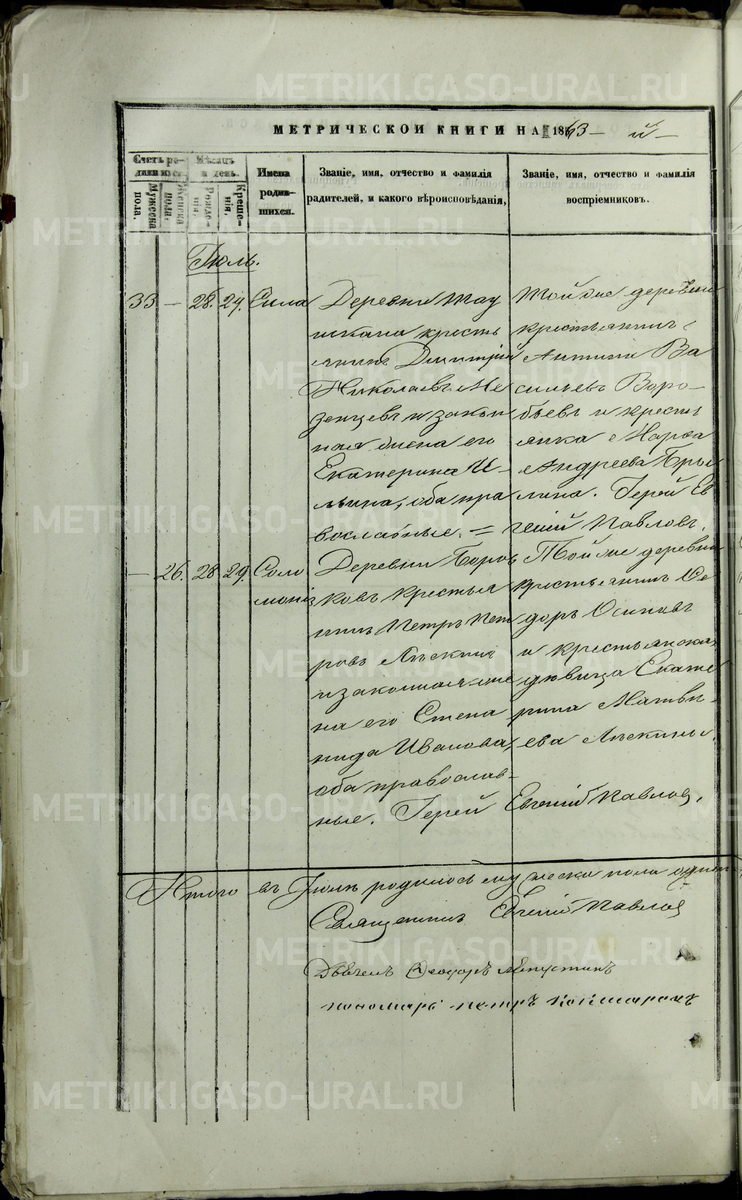 МЕТРИЧЕСКОЙ КНИГИ НА 1863 й
Счетъ родившихся.
Мужеска пола.
Женска пола.
Мѣсяцъ и день.
Рожденія.
Крещенія.
Имена родившихся.
Званіе, имя, отчество и фамилія родителей, и какого вѣроисповѣданія,
Званіе, имя, отчество и фамилія воспріемниковъ.
Іюль.
33 — 28. 29. Сила
Деревни
крестья
янинъ Димитрій
Николаевъ Ме
зенцевъ и закон
ная жена его
Екатерина И
льина, оба пра
вославные. =
Той же деревни
крестьянинъ
Антипа Ва
сильевъ Воро
бьевъ и кресть
янка Марѳа
Андреева
Іерей Ев
геній Павловъ.
— 26. 28 29. Соло
монія
Деревни
ковъ крестья
нинъ Петръ Пет
ровъ
и законная же
на его Степа
нида Иванова,
оба православ
ные. Іерей Евгеній Павловъ.
Той же деревни
крестьянинъ Ѳе
доръ Осиповъ
и крестьянская
дѣвица Екате
рина Матвѣ
ева
Итого въ Іюлѣ родилось мужеска пола одинъ
Священникъ Евгеній Павловъ
Дьячекъ Ѳеодоръ
пономарь Петръ
METRIKI.GASO-URAL.RU